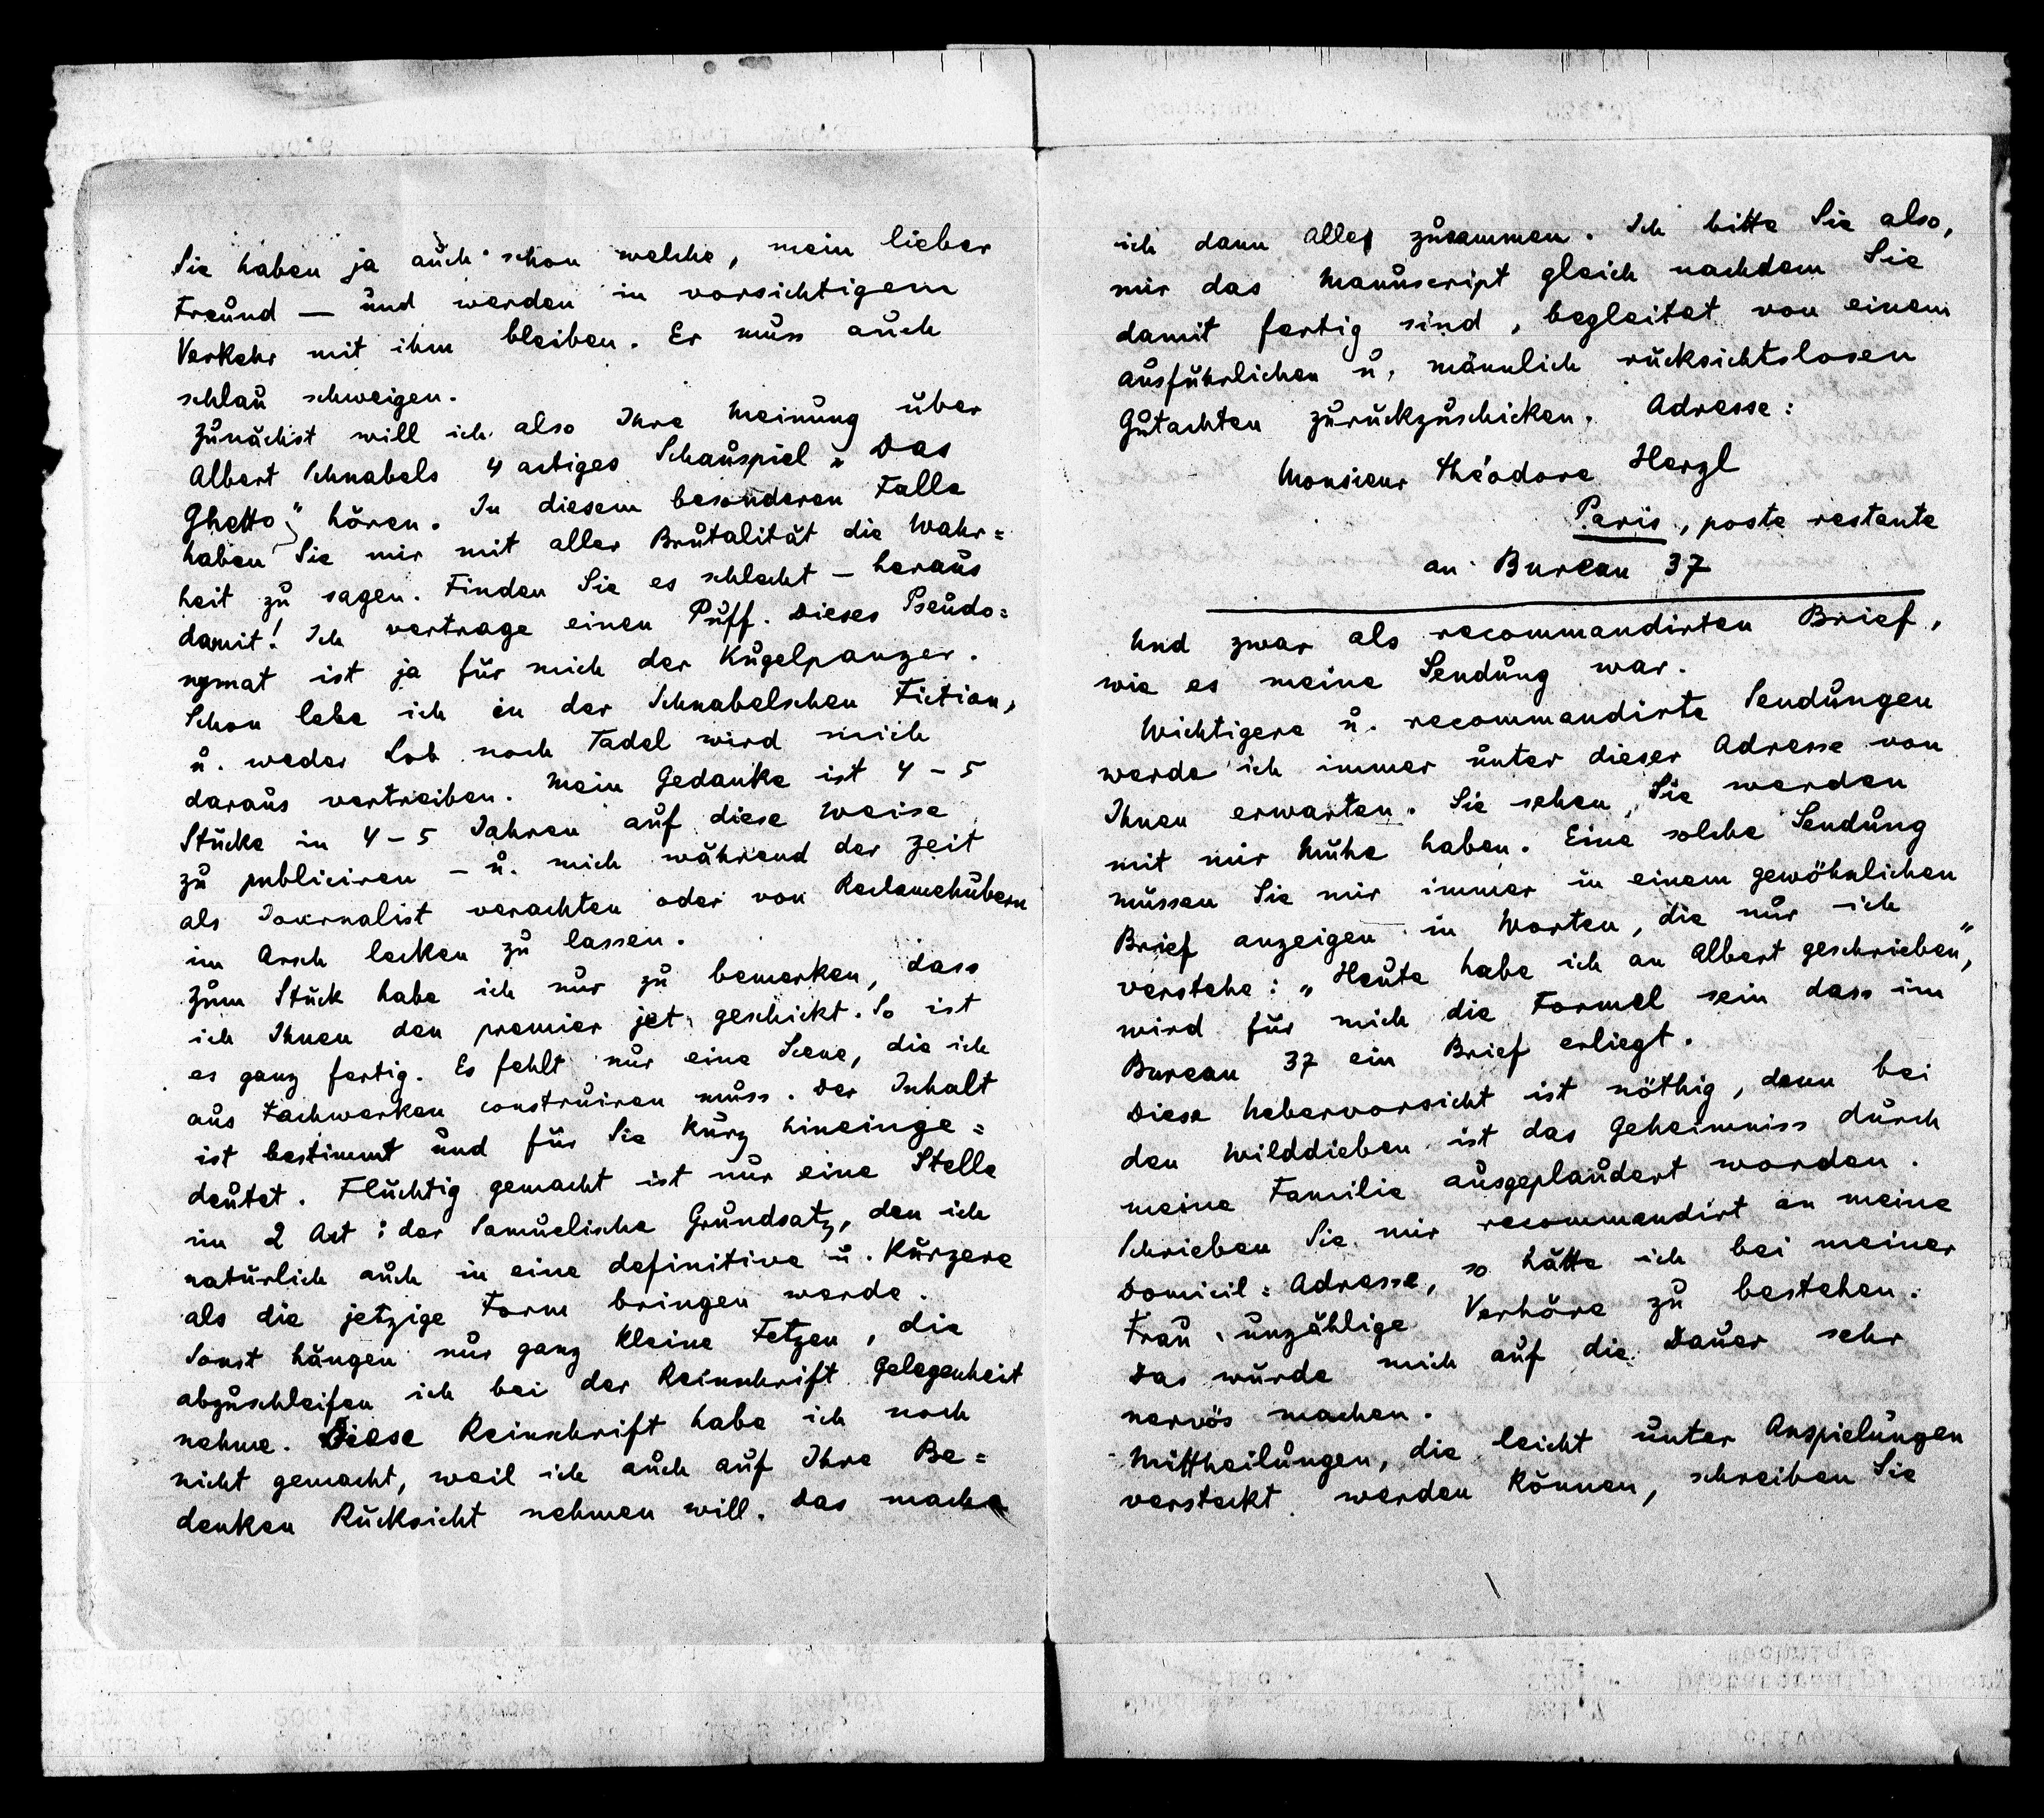 Sie haben ja auch schon welche, mein lieber
Freund — und werden in vorsichtigem
Verkehr mit ihm bleiben. Er muss auch
schlau schweigen.
Zunächst will ich also Ihre Meinung über
Albert Schnabels 4 actiges Schauspiel „Das
Ghetto“ hören. In diesem besonderen Falle
haben Sie mir mit aller Brutalität die Wahr=
heit zu sagen. Finden Sie es schlecht — heraus
damit! Ich vertrage einen Puff. Dieses Pseudo=
nymat ist ja für mich der Kugelpanzer.
Schon lebe ich in der Schnabelschen Fiction,
u. weder Lob noch Tadel wird mich
daraus vertreiben. Mein Gedanke ist 4 – 5
Stücke in 4 – 5 Jahren auf diese Weise
zu publiciren – u. mich während der Zeit
als Journalist verachten oder von Reclamehubern
im Arsch lecken zu lassen.
Zum Stück habe ich nur zu bemerken, dass
ich Ihnen den premier jet geschickt. So ist
es ganz fertig. Es fehlt nur eine Scene, die ich
aus Fachwerken construiren muss. Der Inhalt
ist bestimmt und für Sie kurz hineinge=
deutet. Flüchtig gemacht ist nur eine Stelle
im 2 Act: der Samuelische Grundsatz, den ich
natürlich auch in eine definitive u. kürzere
als die jetzige Form bringen werde.
Sonst hängen nur ganz kleine Fetzen, die
abzuschleifen ich bei der Reinschrift Gelegenheit
nehme. Diese Reinschrift habe ich noch
nicht gemacht, weil ich auch auf Ihre Be=
denken Rücksicht nehmen will. Das mache
ich dann alles zusammen. Ich bitte Sie also,
mir das Manuscript gleich nachdem Sie
damit fertig sind, begleitet von einem
ausführlichen u. männlich rücksichtslosen
Gutachten zurückzuschicken. Adresse:
Monsieur Théodore Herzl
Paris, poste restante
an Bureau 37
Und zwar als recommandirten Brief,
wie es meine Sendung war.
Wichtigere u. recommandirte Sendungen
werde ich immer unter dieser Adresse von
Ihnen erwarten. Sie sehen, Sie werden
mit mir Mühe haben. Eine solche Sendung
müssen Sie mir immer in einem gewöhnlichen
Brief anzeigen in Worten, die nur ich
verstehe: „Heute habe ich an Albert geschrieben“,
wird für mich die Formel sein dass im
Bureau 37 ein Brief erliegt.
Diese Uebervorsicht ist nöthig, denn bei
den Wilddieben ist das Geheimniss durch
meine Familie ausgeplaudert worden.
Schrieben Sie mir recommandirt an meine
Domicil=Adresse, so hätte ich bei meiner
Frau unzählige Verhöre zu bestehen.
Das würde mich auf die Dauer sehr
nervös machen.
Mittheilungen, die leicht unter Anspielungen
versteckt werden können, schreiben Sie